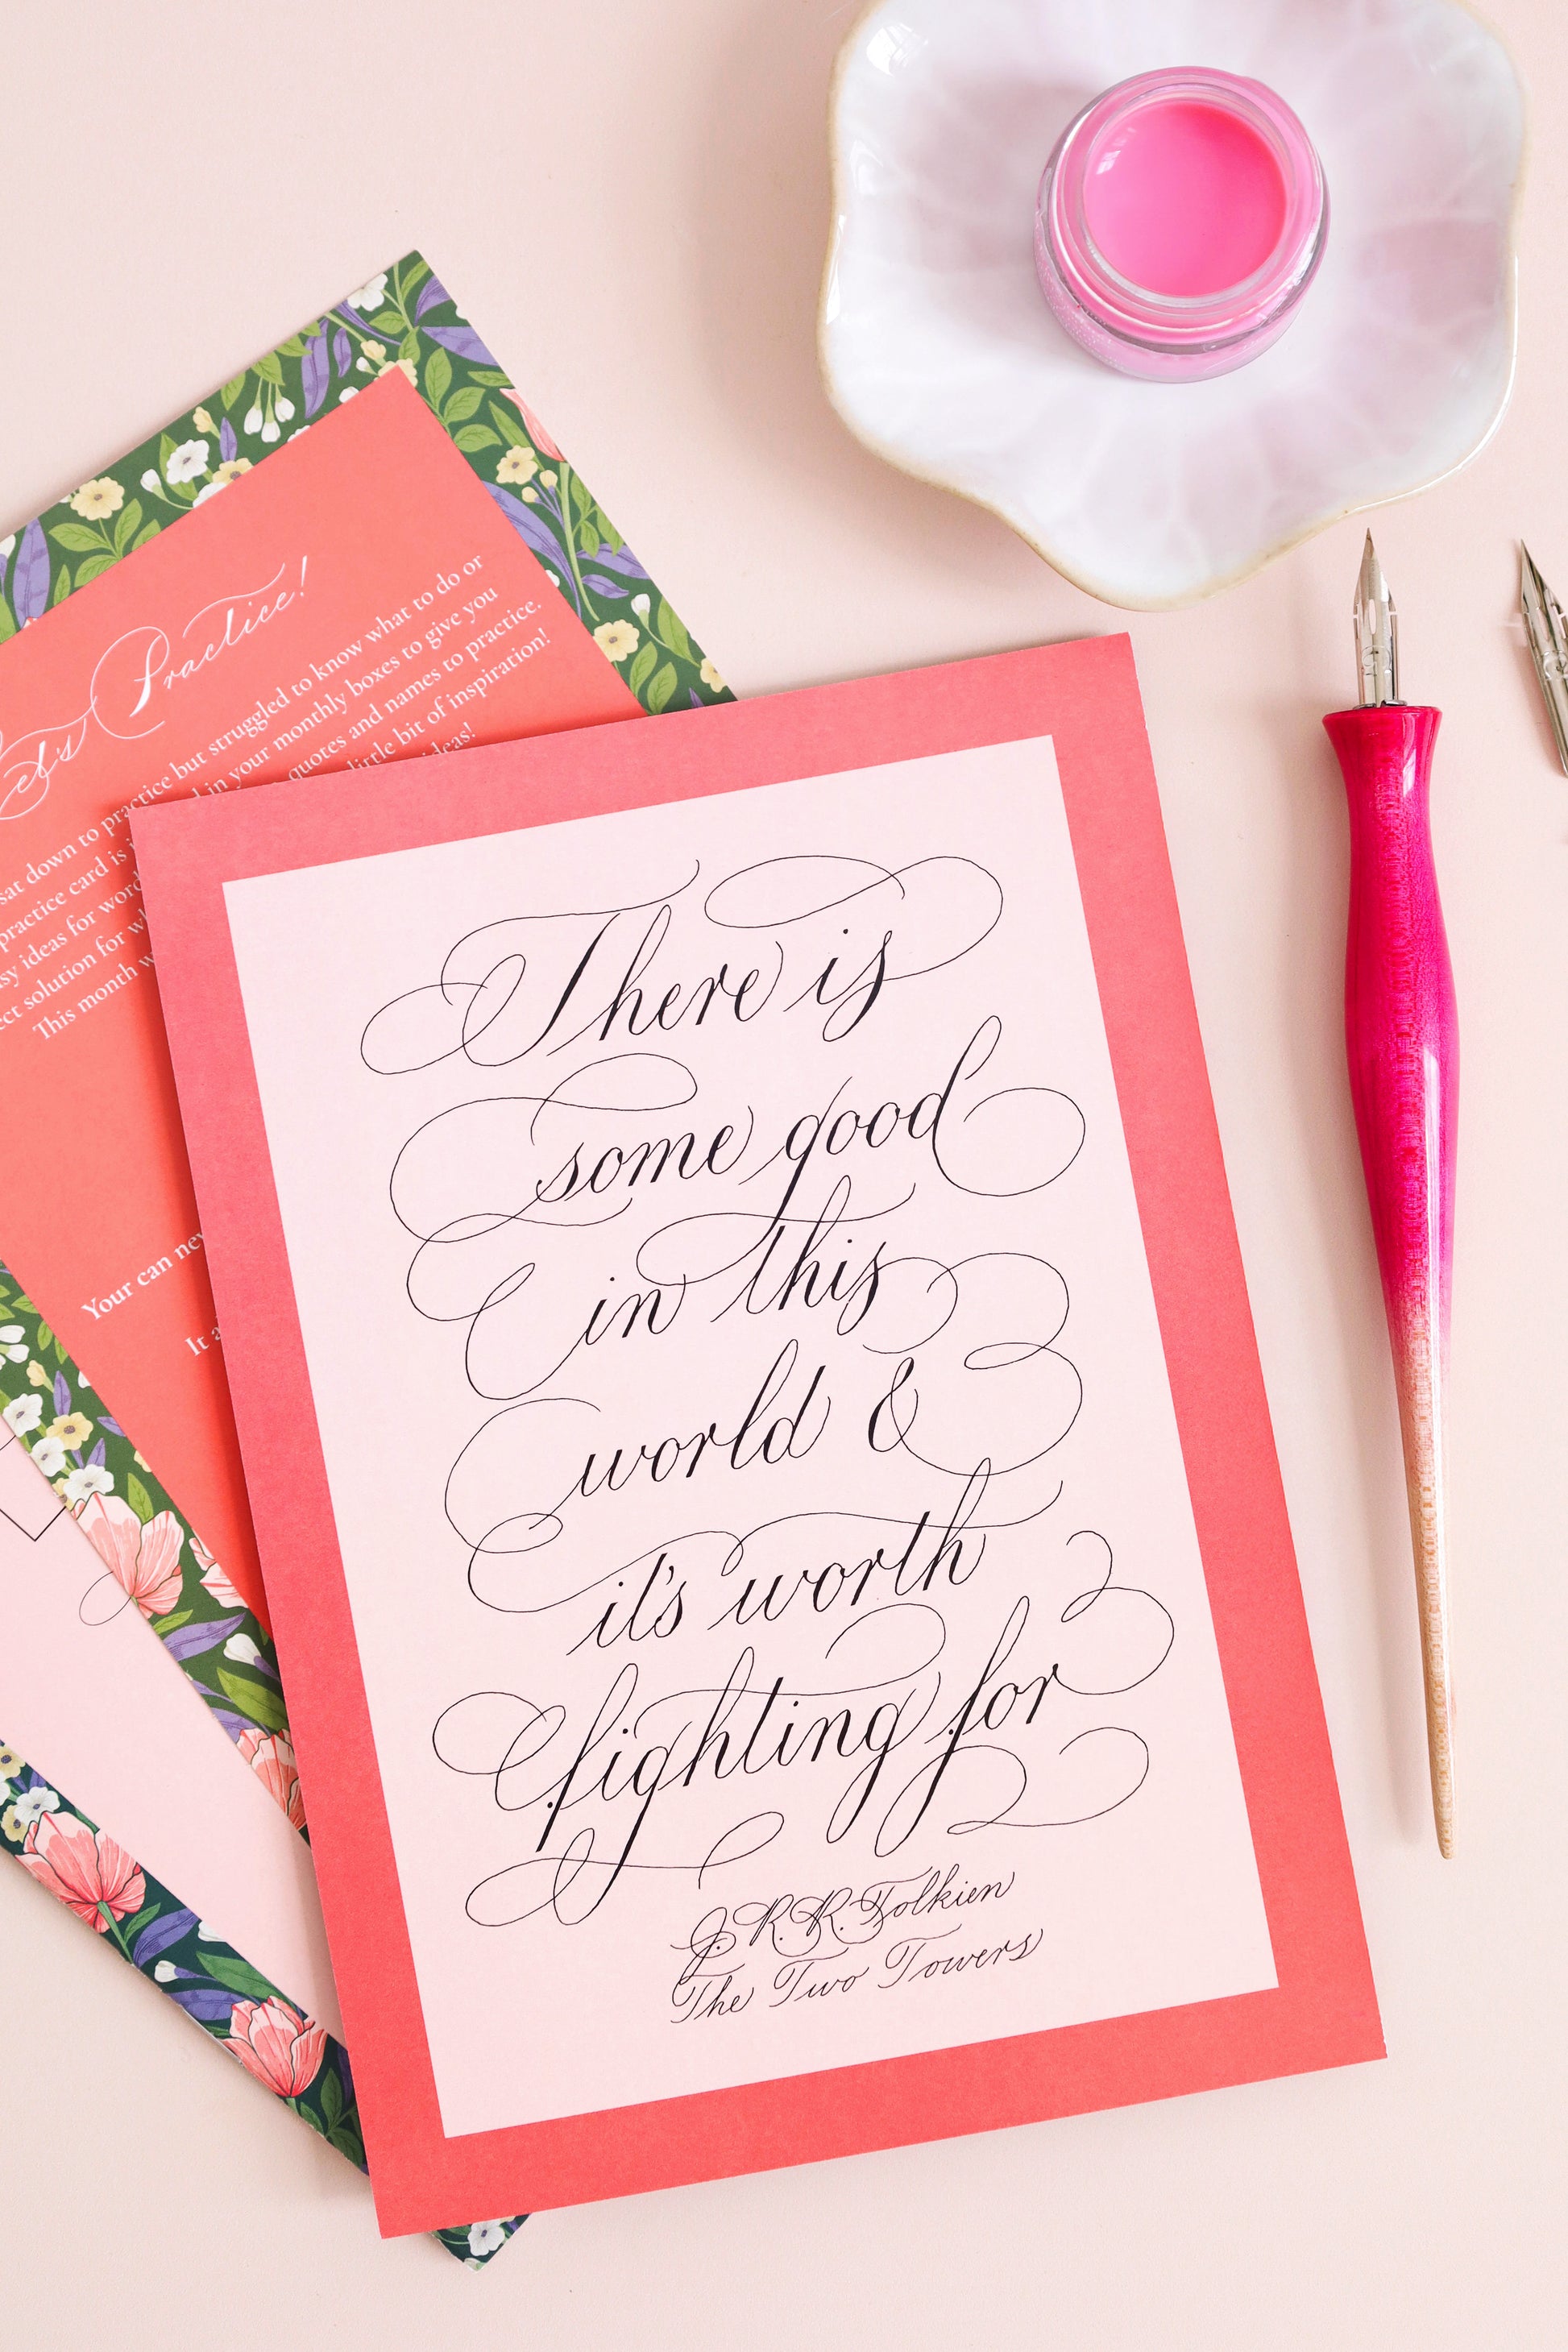 Let's Practice!
sat down to practice but struggled to know what to do or
practice card is in your monthly boxes to give you
ideas for quotes and names to practice.
solution for little bit of inspiration!
This month ideas!
Your can
It
There is
some good
in this
world &
it's worth
fighting for
J.R.R. Tolkien
The Two Towers